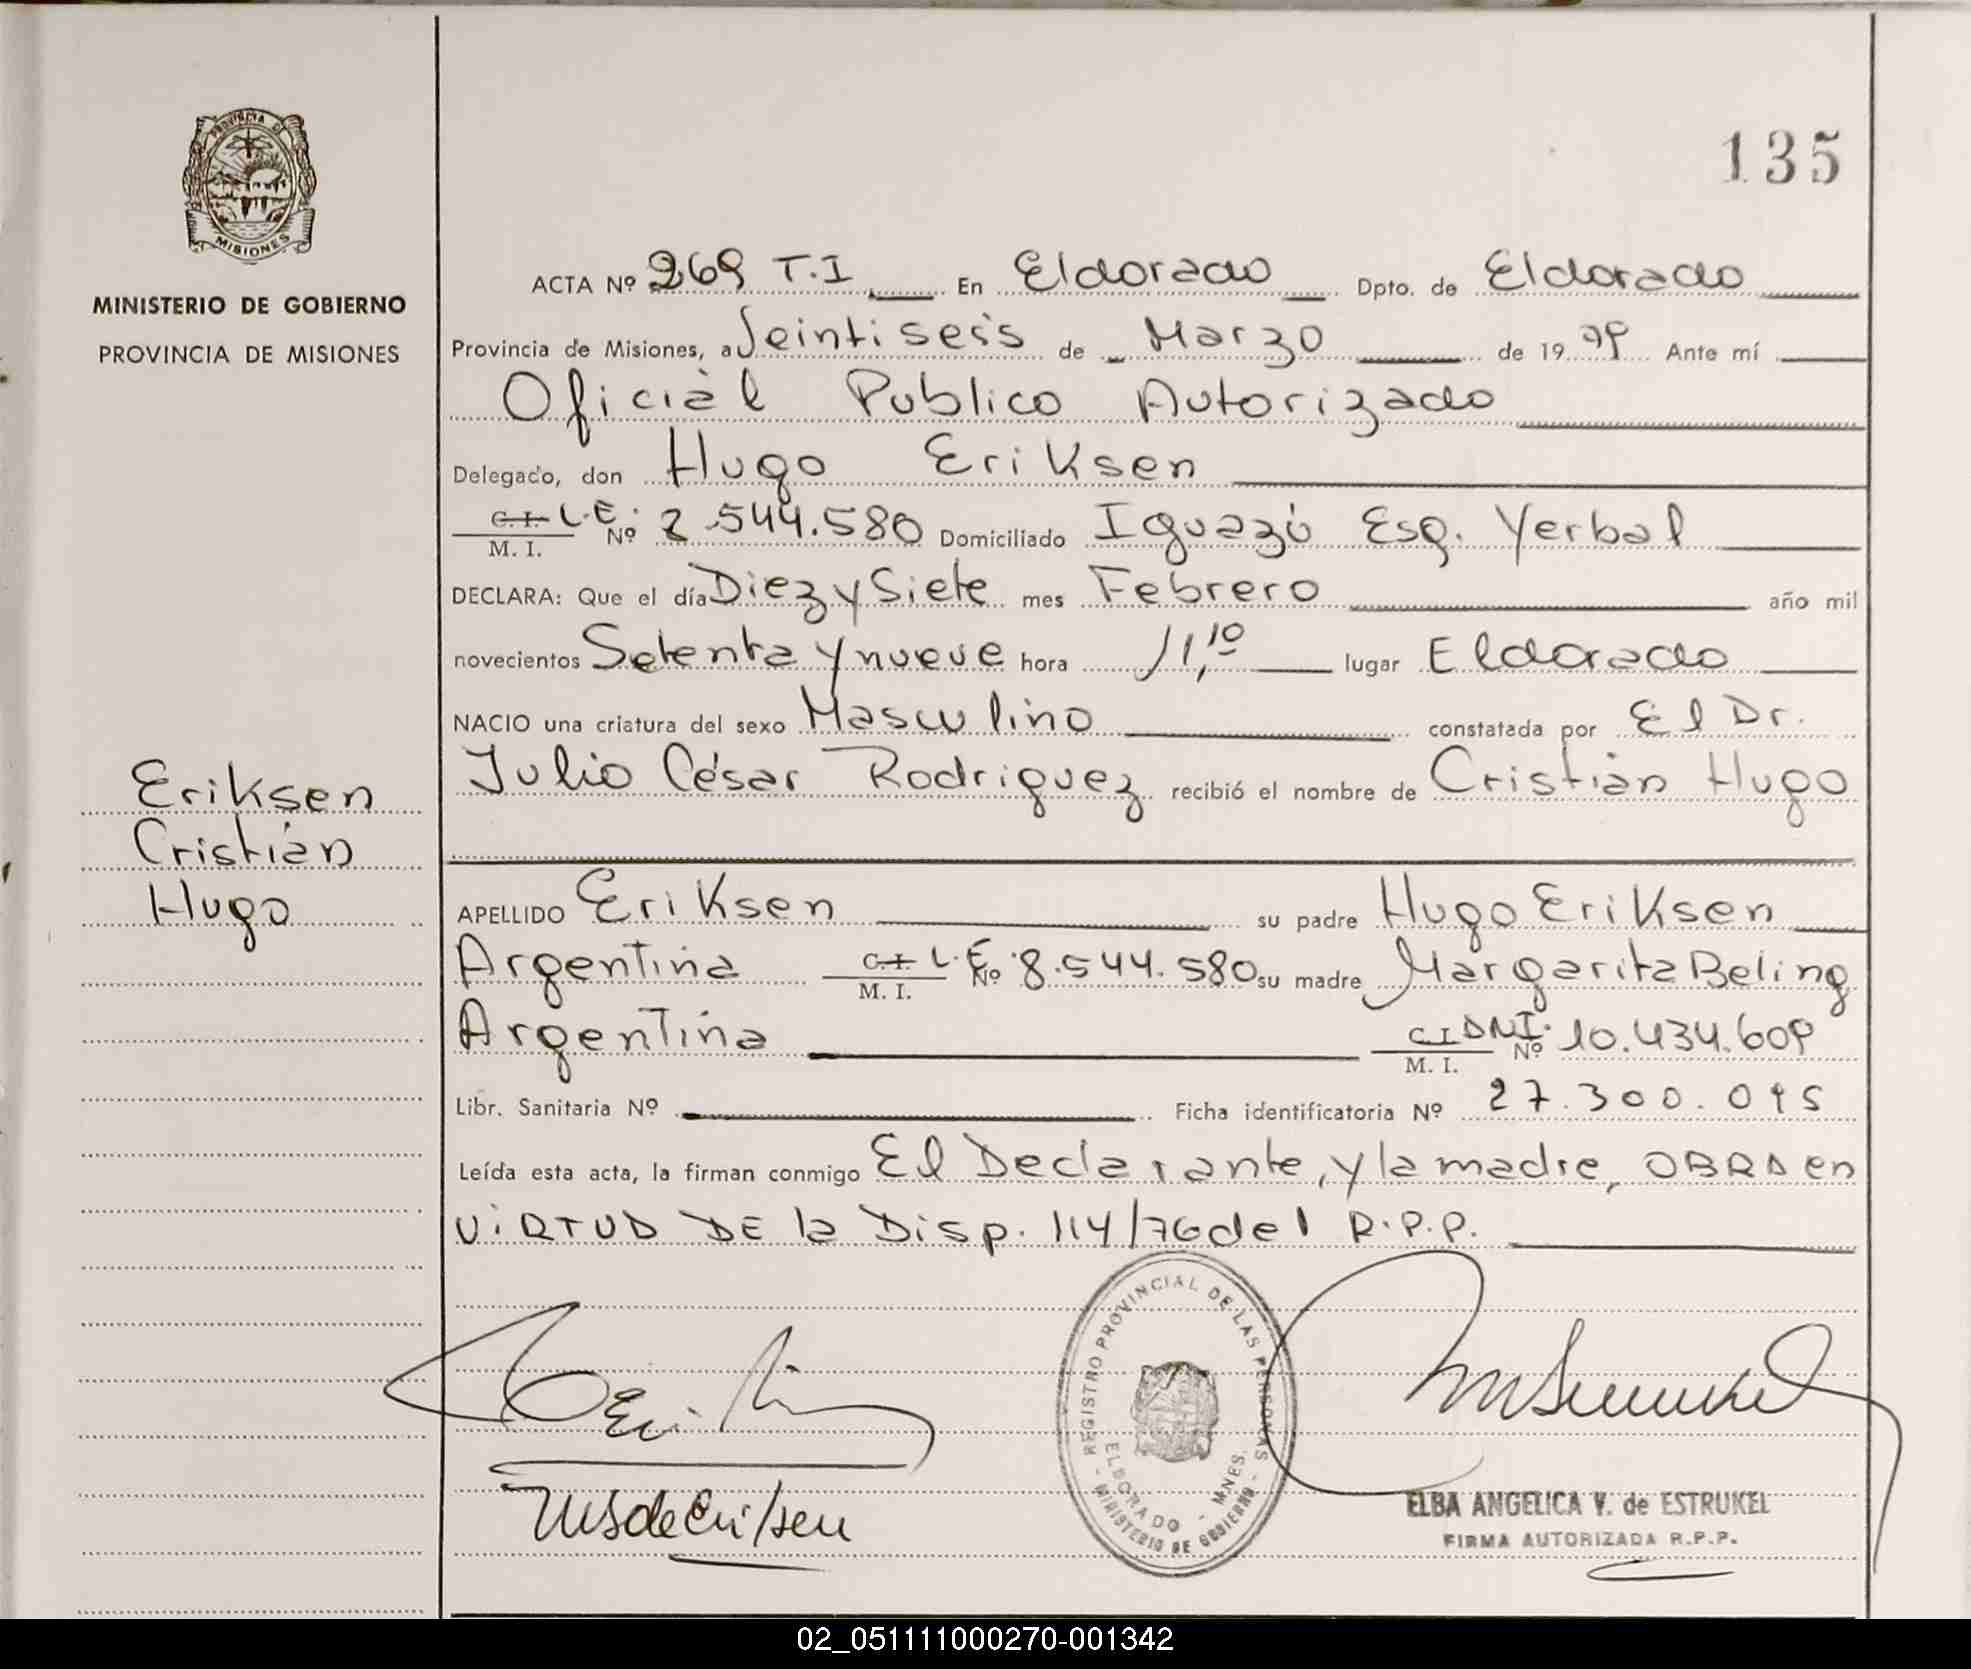 PROVINCIA DE
MISIONES
MINISTERIO DE GOBIERNO
PROVINCIA DE MISIONES
135
ACTA Nº 269 T.I En Eldorado Dpto. de Eldorado
Provincia de Misiones, a Veintiseis de Marzo de 1979 Ante mí
Oficial Publico Autorizado
Delegado, don Hugo Eriksen
C.I. L.E. Nº 8.544.580 Domiciliado Iguazú Esq. Yerbal
M. I.
DECLARA: Que el día Diez y Siete mes Febrero año mil
novecientos Setenta y nueve hora 11,10 lugar Eldorado
NACIO una criatura del sexo Masculino constatada por El Dr.
Julio César Rodriguez recibió el nombre de Cristián Hugo
Eriksen
Cristián
Hugo
APELLIDO Eriksen su padre Hugo Eriksen
Argentina C.I. L.E. Nº 8.544.580 su madre Margarita Beling
M. I.
Argentina C I DNI. Nº 10.434.609
M. I.
Libr. Sanitaria Nº Ficha identificatoria Nº 27.300.095
Leída esta acta, la firman conmigo El Declarante, y la madre, OBRA en
VIRTUD DE la Disp. 114/76 del R.P.P.
REGISTRO PROVINCIAL DE LAS PERSONAS
ELDORADO - MNES.
- MINISTERIO DE GOBIERNO -
MB de Eriksen
ELBA ANGELICA V. de ESTRUKEL
FIRMA AUTORIZADA R.P.P.
02_051111000270-001342